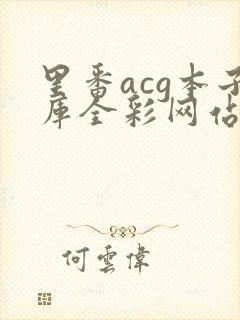 里番acg本子
库全彩网站
何雲偉